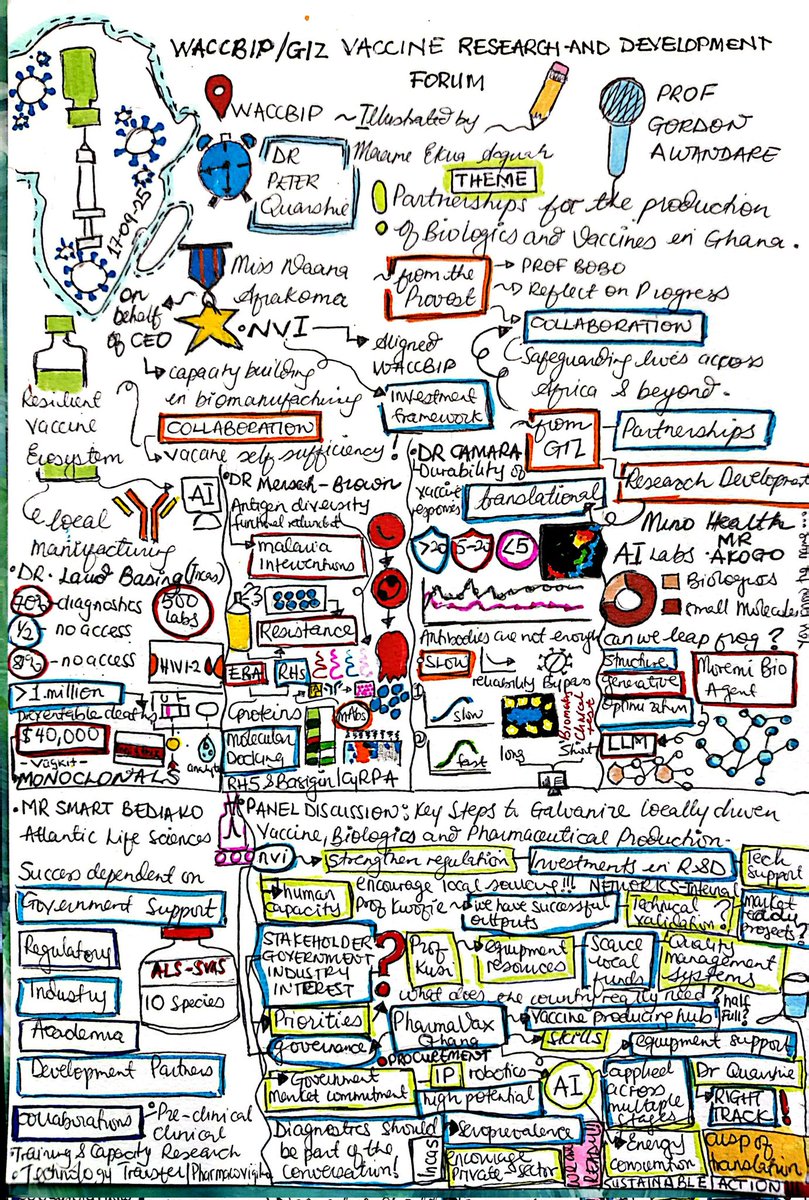 WACCBIP/GIZ VACCINE RESEARCH AND DEVELOPMENT
FORUM
WACCBIP ~Illustrated by
Maame Ekua Acquah
PROF
GORDON
AWANDARE
DR
PETER
Quarshie
17-09-25
THEME
Partnerships for the production
of Biologics and Vaccines in Ghana.
Miss Naana
Afrakoma
on
behalf
of CEO
NVI
capacity building
in biomanufacturing
COLLABORATION
Vaccine self sufficiency!
Aligned
WACCBIP
investment
framework
from the
Provost
PROF BOBO
Reflect on Progress
COLLABORATION
Safeguarding lives across
Africa & beyond.
from
GIZ
Partnerships
Research Development
Resilient
Vaccine
Ecosystem
local
manufacturing
AI
DR. Laud Basing (Incas)
70% -diagnostics
500
labs
1/2 - no access
81% - no access
HIV1-2
>1 million
preventable deaths
$40,000
MONOCLONALS
DR Mensah-Brown
Antigen diversity
functional redundant
malaria
interventions
Resistance
EBA
RHs
proteins
mAbs
Molecular
Docking
RH5 & Basigin/CyRPA
DR CAMARA
Durability of
vaccine
responses
translational
>20
5-20
<5
Antibodies are not enough
SLOW
reliability Bypass
1
slow
2
fast
long
Short
Mino Health
AI Labs
MR
AKOGO
Biologics
Small Molecules
can we leap frog?
structure
generative
optimization
Moremi Bio
Agent
LLM
MR SMART BEDIAKO
Atlantic Life Sciences
Success dependent on
Government Support
Regulatory
Industry
Academia
Development Partners
collaborations
ALS-SVAS
10 Species
Pre-clinical
clinical
Training & Capacity Research
Technology Transfer/
PANEL DISCUSSION: Key Steps to Galvanize locally driven
Vaccine, Biologics and Pharmaceutical Production.
nvi
Strengthen regulation
Investments in R&D
Tech
support
human
capacity
encourage local sourcing!!!
Prof Kwofie
we have successful
outputs
Technical
validation?
market
ready
projects?
STAKEHOLDER
GOVERNMENT
INDUSTRY
INTEREST
?
Prof
Kusi
equipment
resources
Scarce
local
funds
Quality
management
systems
what does the country really need?
half
Full?
Priorities
governance
PharmaVax
Ghana
Vaccine producing hub
Skills
equipment support
PROCUREMENT
Government
market commitment
IP
robotics
high potential
AI
applied
across
multiple
stages
Dr Quarshie
RIGHT
TRACK!
Diagnostics should
be part of the
conversation!
Incas
Seroprevalence
encourage
Private sector
WE ARE
READY!!
Energy
consumption
cusp of
translation
SUSTAINABLE ACTION!!!